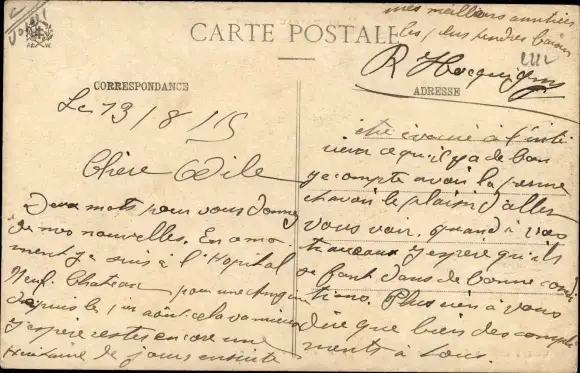 CARTE POSTALE
CORRESPONDANCE
Le 13/8/15
Chère Odile
Deux mots pour vous donner
de mes nouvelles. En ce mo
ment je suis à l'Hopital
Neufchateau pour une
depuis le 1er août cela va mieux
j'espère rester encore une
Huitaine de jours ensuite
ADRESSE
être évacué à l'inté
rieur ce qu'il y a de bon
je compte avoir la perme
et avoir le plaisir d'aller
vous voir, quand à vos
travaux j'espère qu'ils
se font dans de bonne condi
tions. Plus rien à vous
dire que bien des compli
ments à tous.
mes meilleurs amitiés
les plus tendres baisers
R Hocquigny